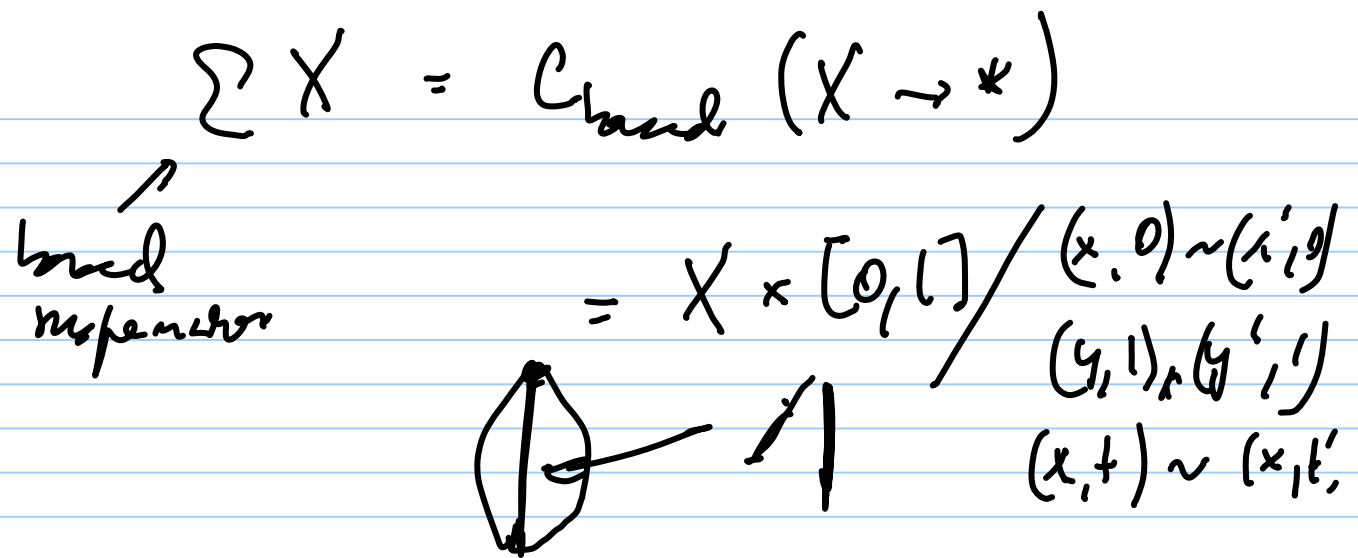 Σ X = C_based (X → *)
based
suspension
= X × [0,1] / (x,0) ~ (x',0)
(y,1) ~ (y',1)
(x,t) ~ (x,t'